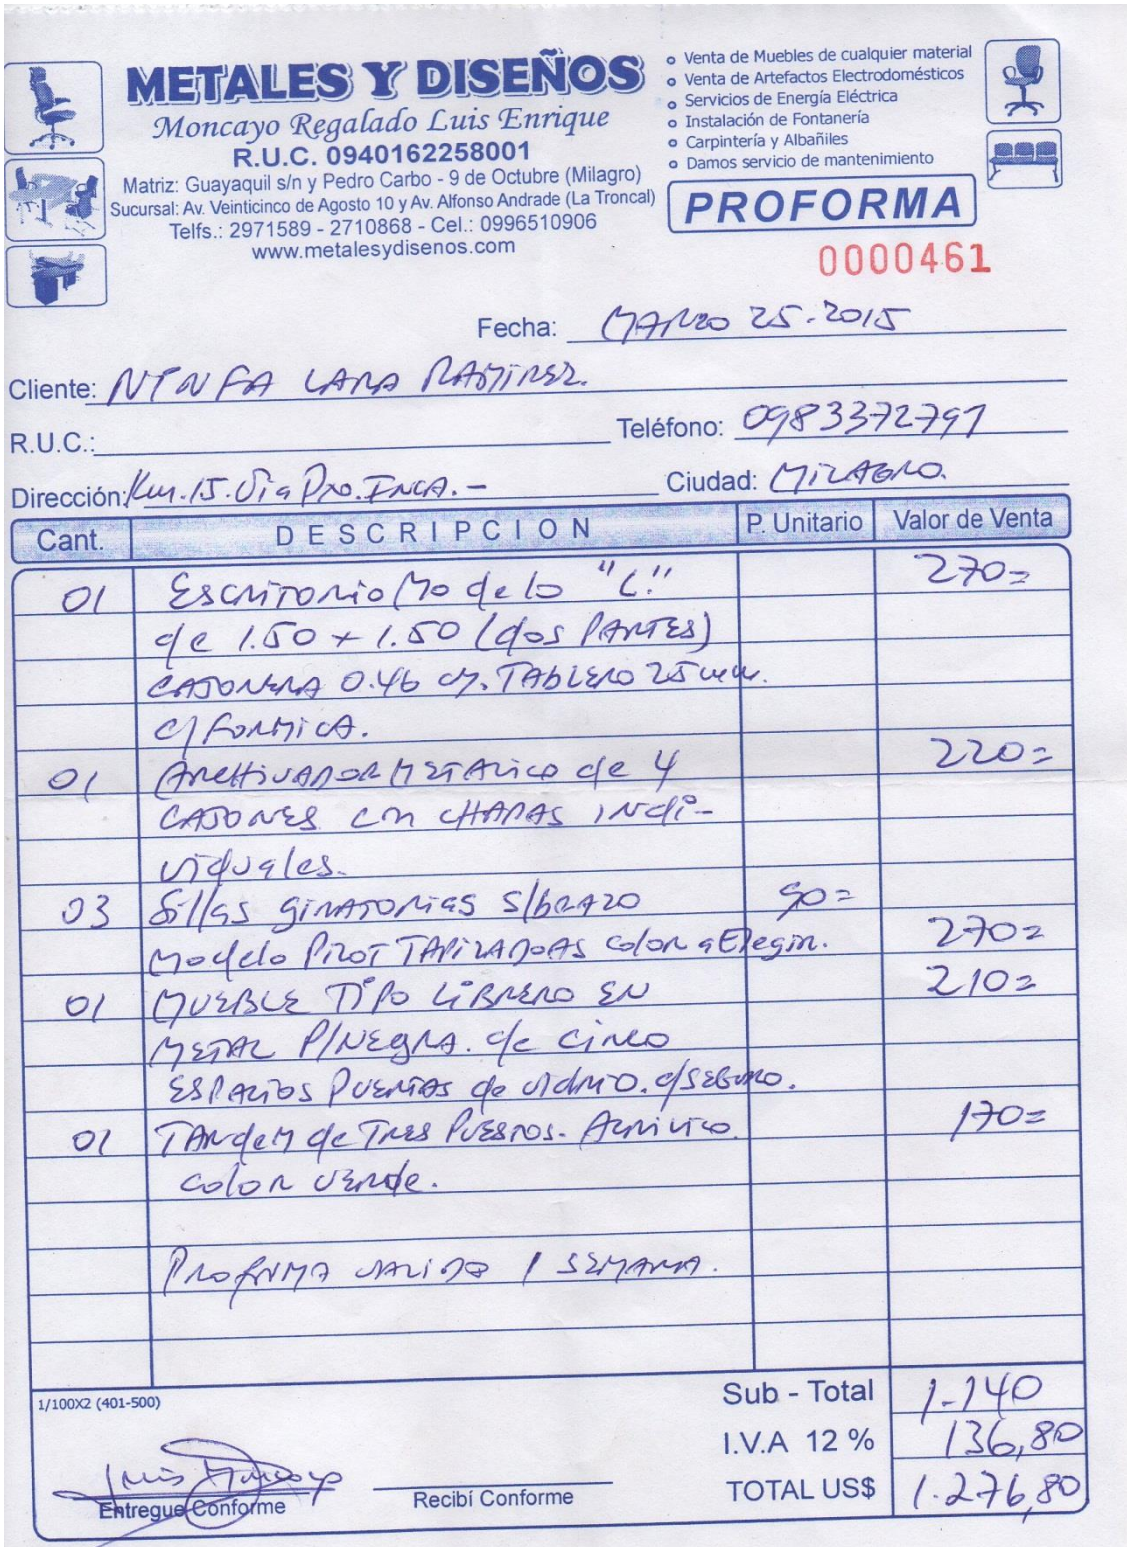 METALES Y DISEÑOS
Moncayo Regalado Luis Enrique
R.U.C. 0940162258001
Matriz: Guayaquil s/n y Pedro Carbo - 9 de Octubre (Milagro)
Sucursal: Av. Veinticinco de Agosto 10 y Av. Alfonso Andrade (La Troncal)
Telfs.: 2971589 - 2710868 - Cel.: 0996510906
www.metalesydisenos.com
Venta de Muebles de cualquier material
Venta de Artefactos Electrodomésticos
Servicios de Energía Eléctrica
Instalación de Fontanería
Carpintería y Albañiles
Damos servicio de mantenimiento
PROFORMA
0000461
Fecha: MARZO 25-2015
Cliente: NINFA LARA RAMIREZ.
R.U.C.: Teléfono: 0983372797
Dirección: Km.15.Via Pto.INCA.- Ciudad: MILAGRO.
Cant. DESCRIPCION P. Unitario Valor de Venta
01 Escritorio Modelo "L" 270=
de 1.50 x 1.50 (dos PARTES)
CAJONERA 0.46 cm. TABLERO 25 mm.
c/ FORMICA.
01 ARCHIVADOR METALICO de 4 220=
CAJONES con CHAPAS INdi-
viduales.
03 Sillas giratorias s/brazo 90=
Modelo PILOT TAPIZADOAS color a Elegir. 270=
01 MUEBLE TIPO LIBRERO EN 210=
METAL P/NEGRA. de CINCO
ESPACIOS PUERTAS de vidrio. c/SEGURO.
01 TANdeM de TRES PUESTOS. Acrilico 170=
color VERde.
PROFORMA VALIDO 1 SEMANA.
1/100X2 (401-500)
Sub - Total 1.140
I.V.A 12 % 136,80
TOTAL US$ 1.276,80
Entregue Conforme
Recibí Conforme